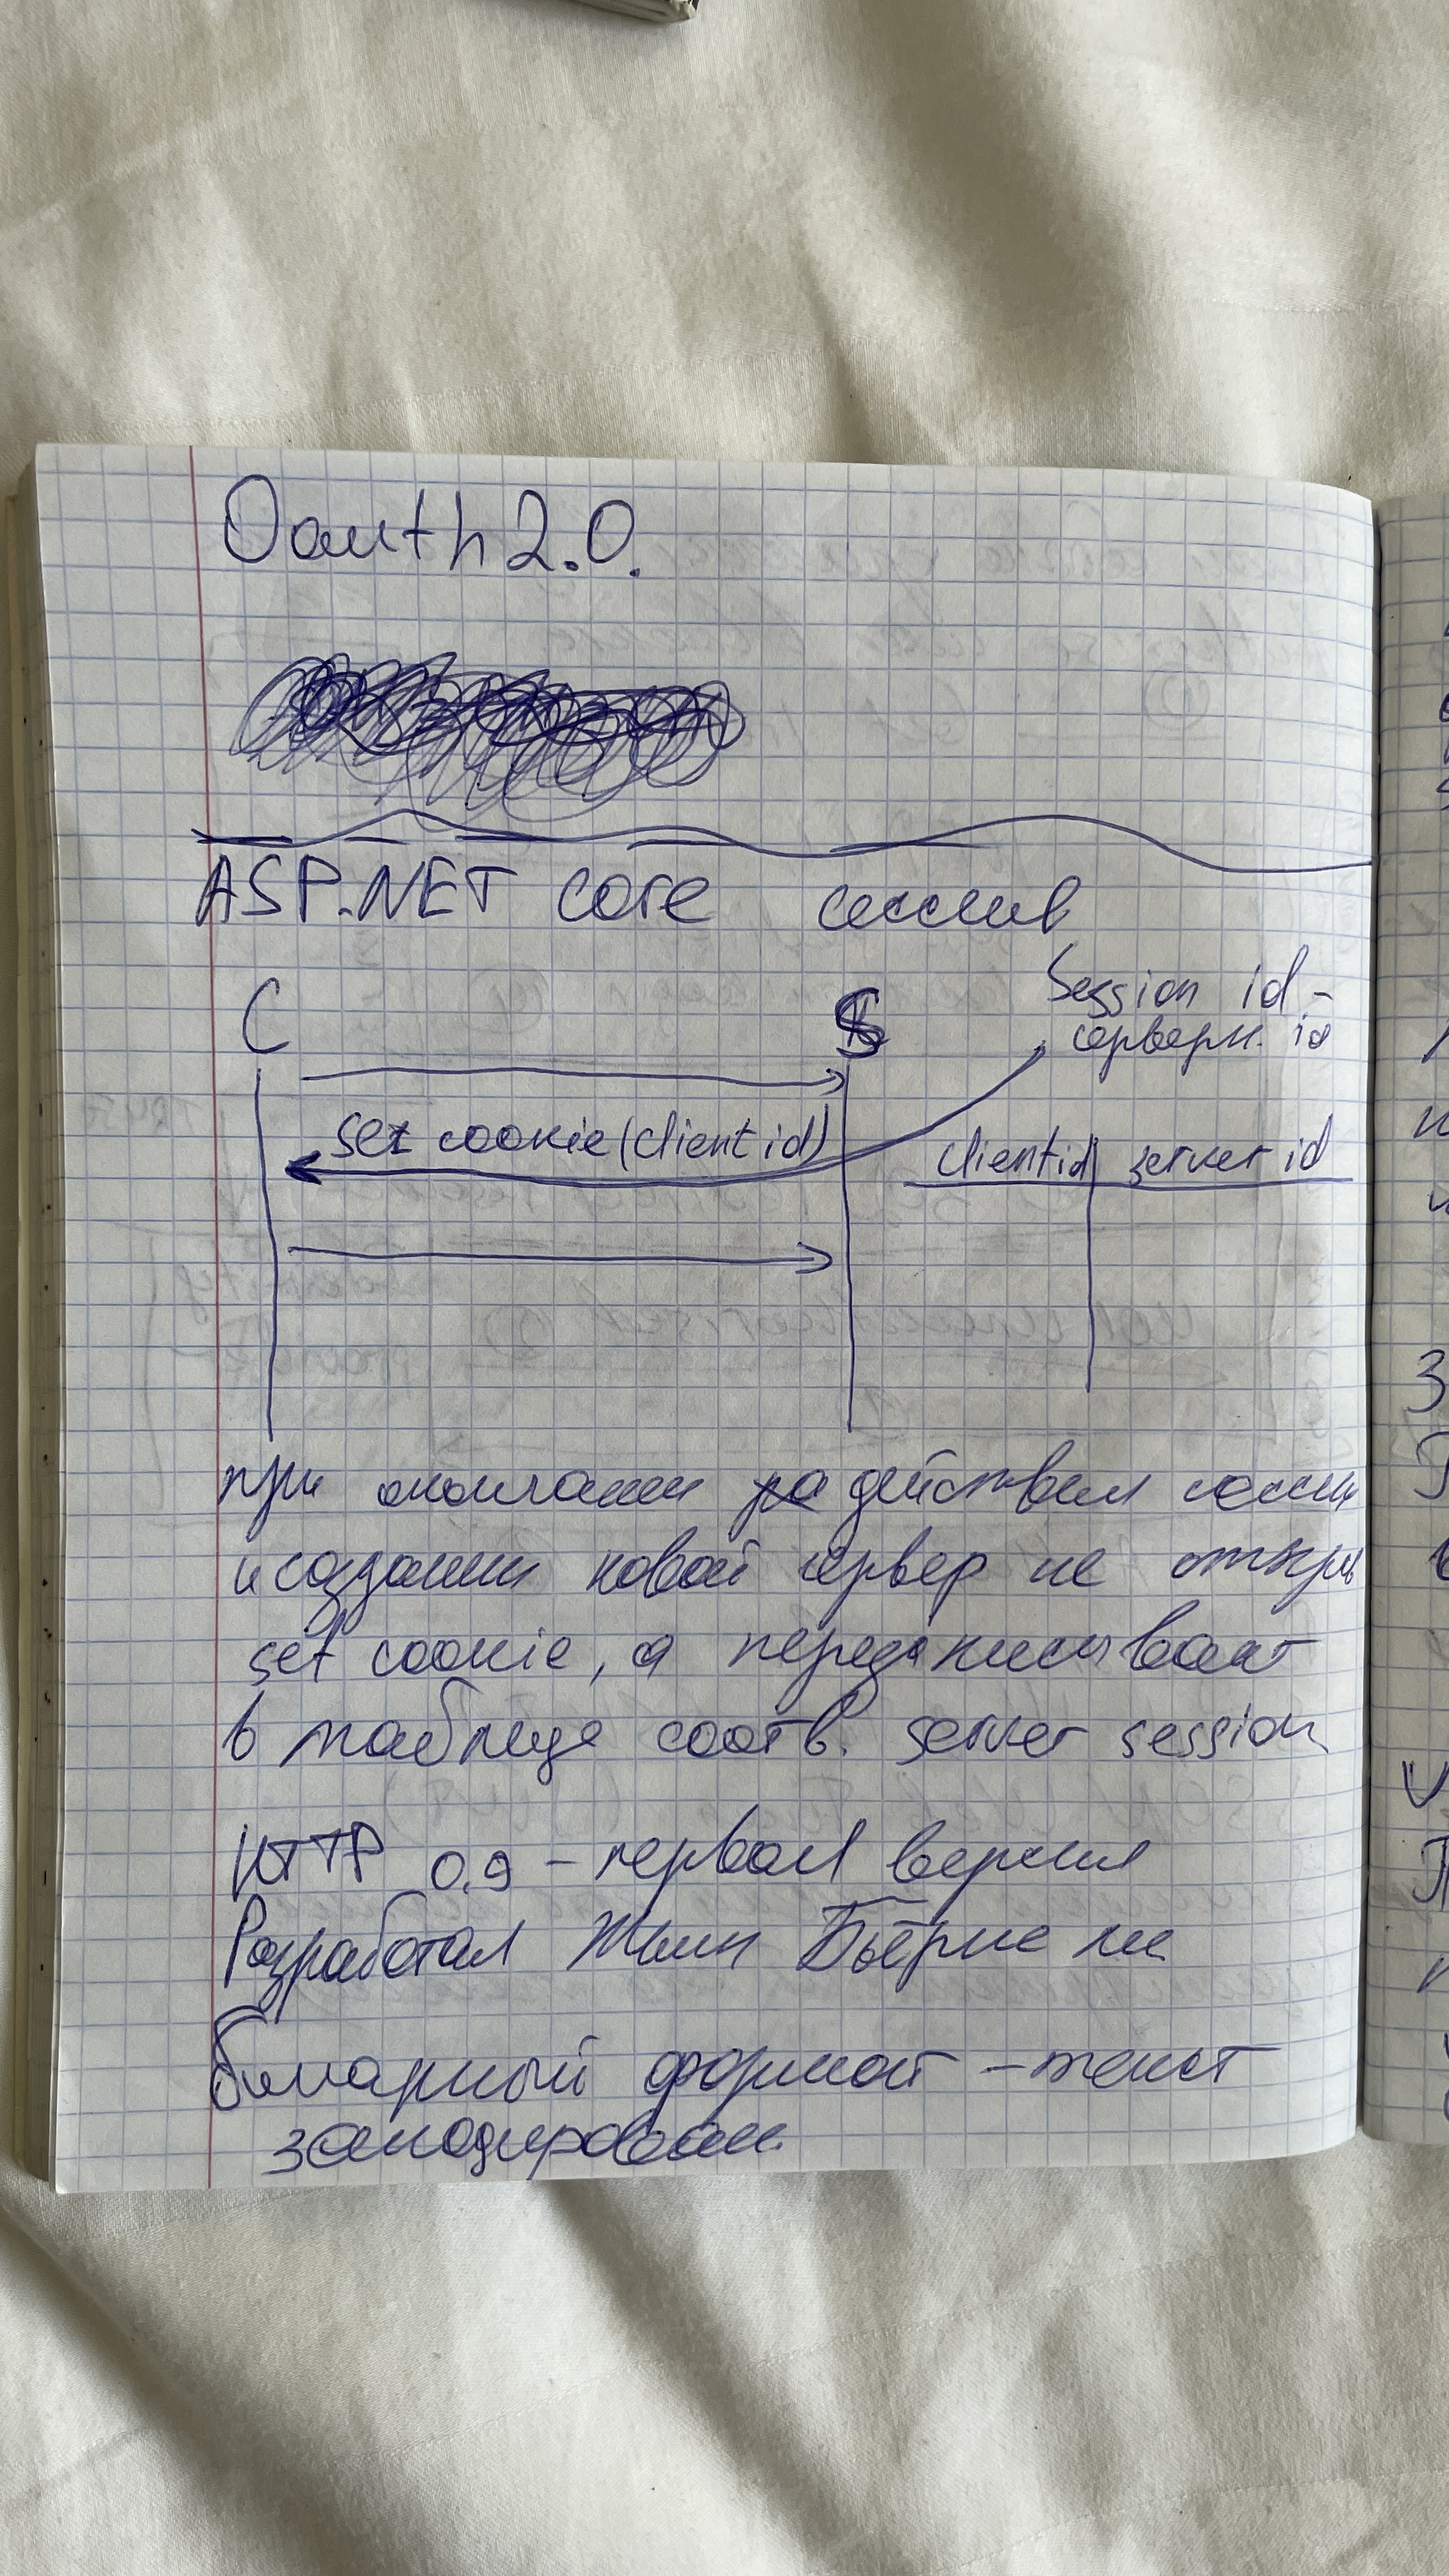 Oauth 2.0.
ASP.NET core сессии
C S
Session id -
серверн. id
set cookie (client id)
client id server id
при окончании действия сессии
и создании новой сервер не откры
set cookie, а перезаписывает
в таблице соотв. server session
HTTP 0.9 - первая версия
Разработал Бьёрне ли
бинарный формат - текст
закодирован.